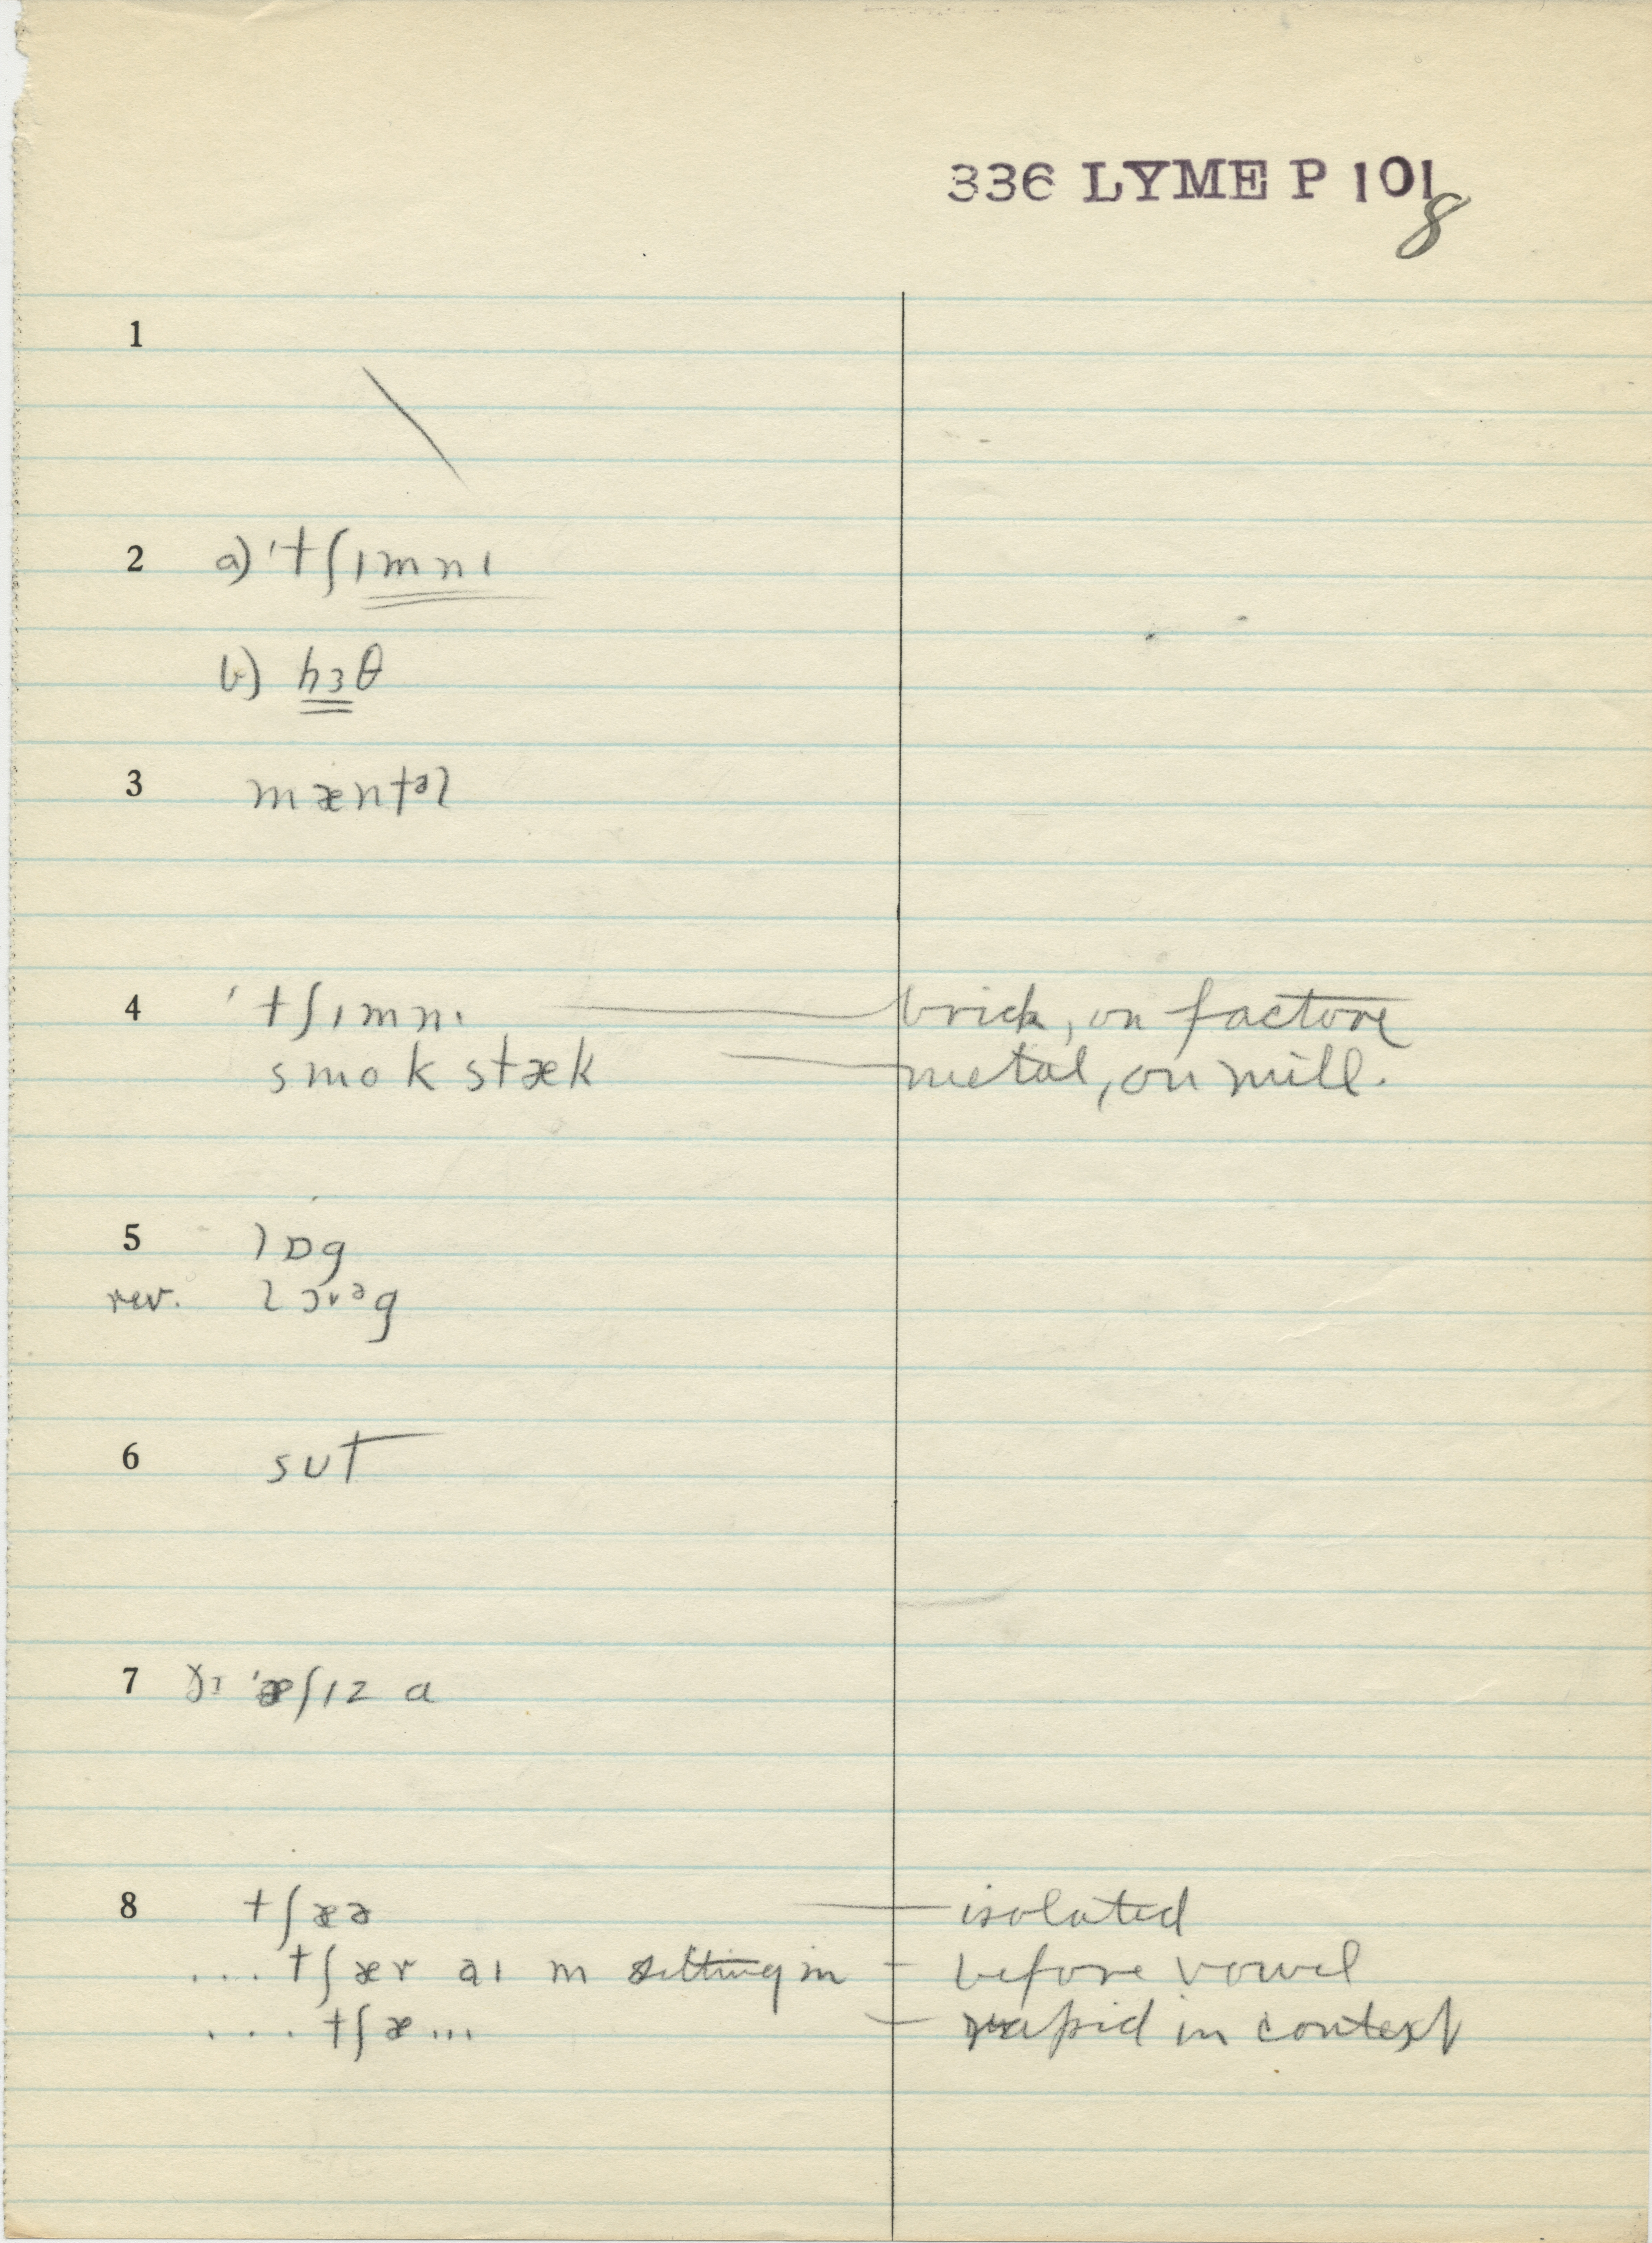 336 LYME P 101
8
1
2 a) 'tʃɪmnɪ
b) hɜθ
3 mæntᵊl
4 'tʃɪmnɪ brick, on factore
smokstæk metal, on mill.
5 lɒg
rev. lɔ˅ᵊg
6 sʊt
7 'æʃɪz a
8 tʃæə isolated
... tʃær aɪ m sitting in - before vowel
... tʃæ... - rapid in context